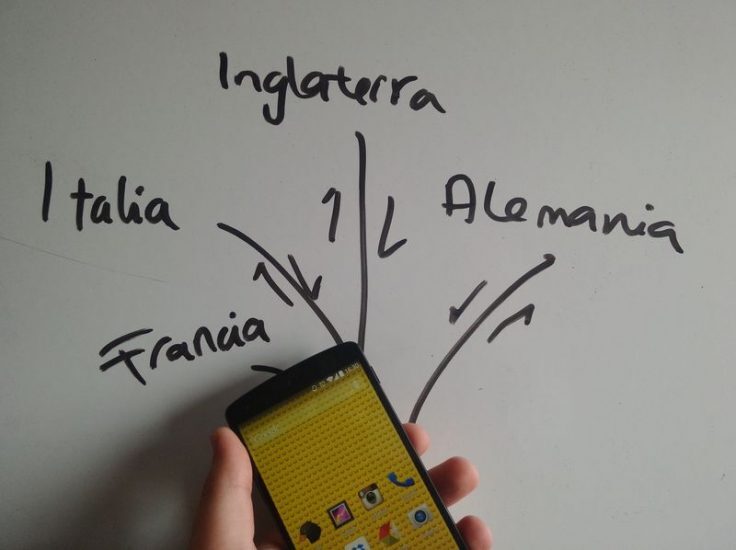 Inglaterra
Italia
Alemania
Francia